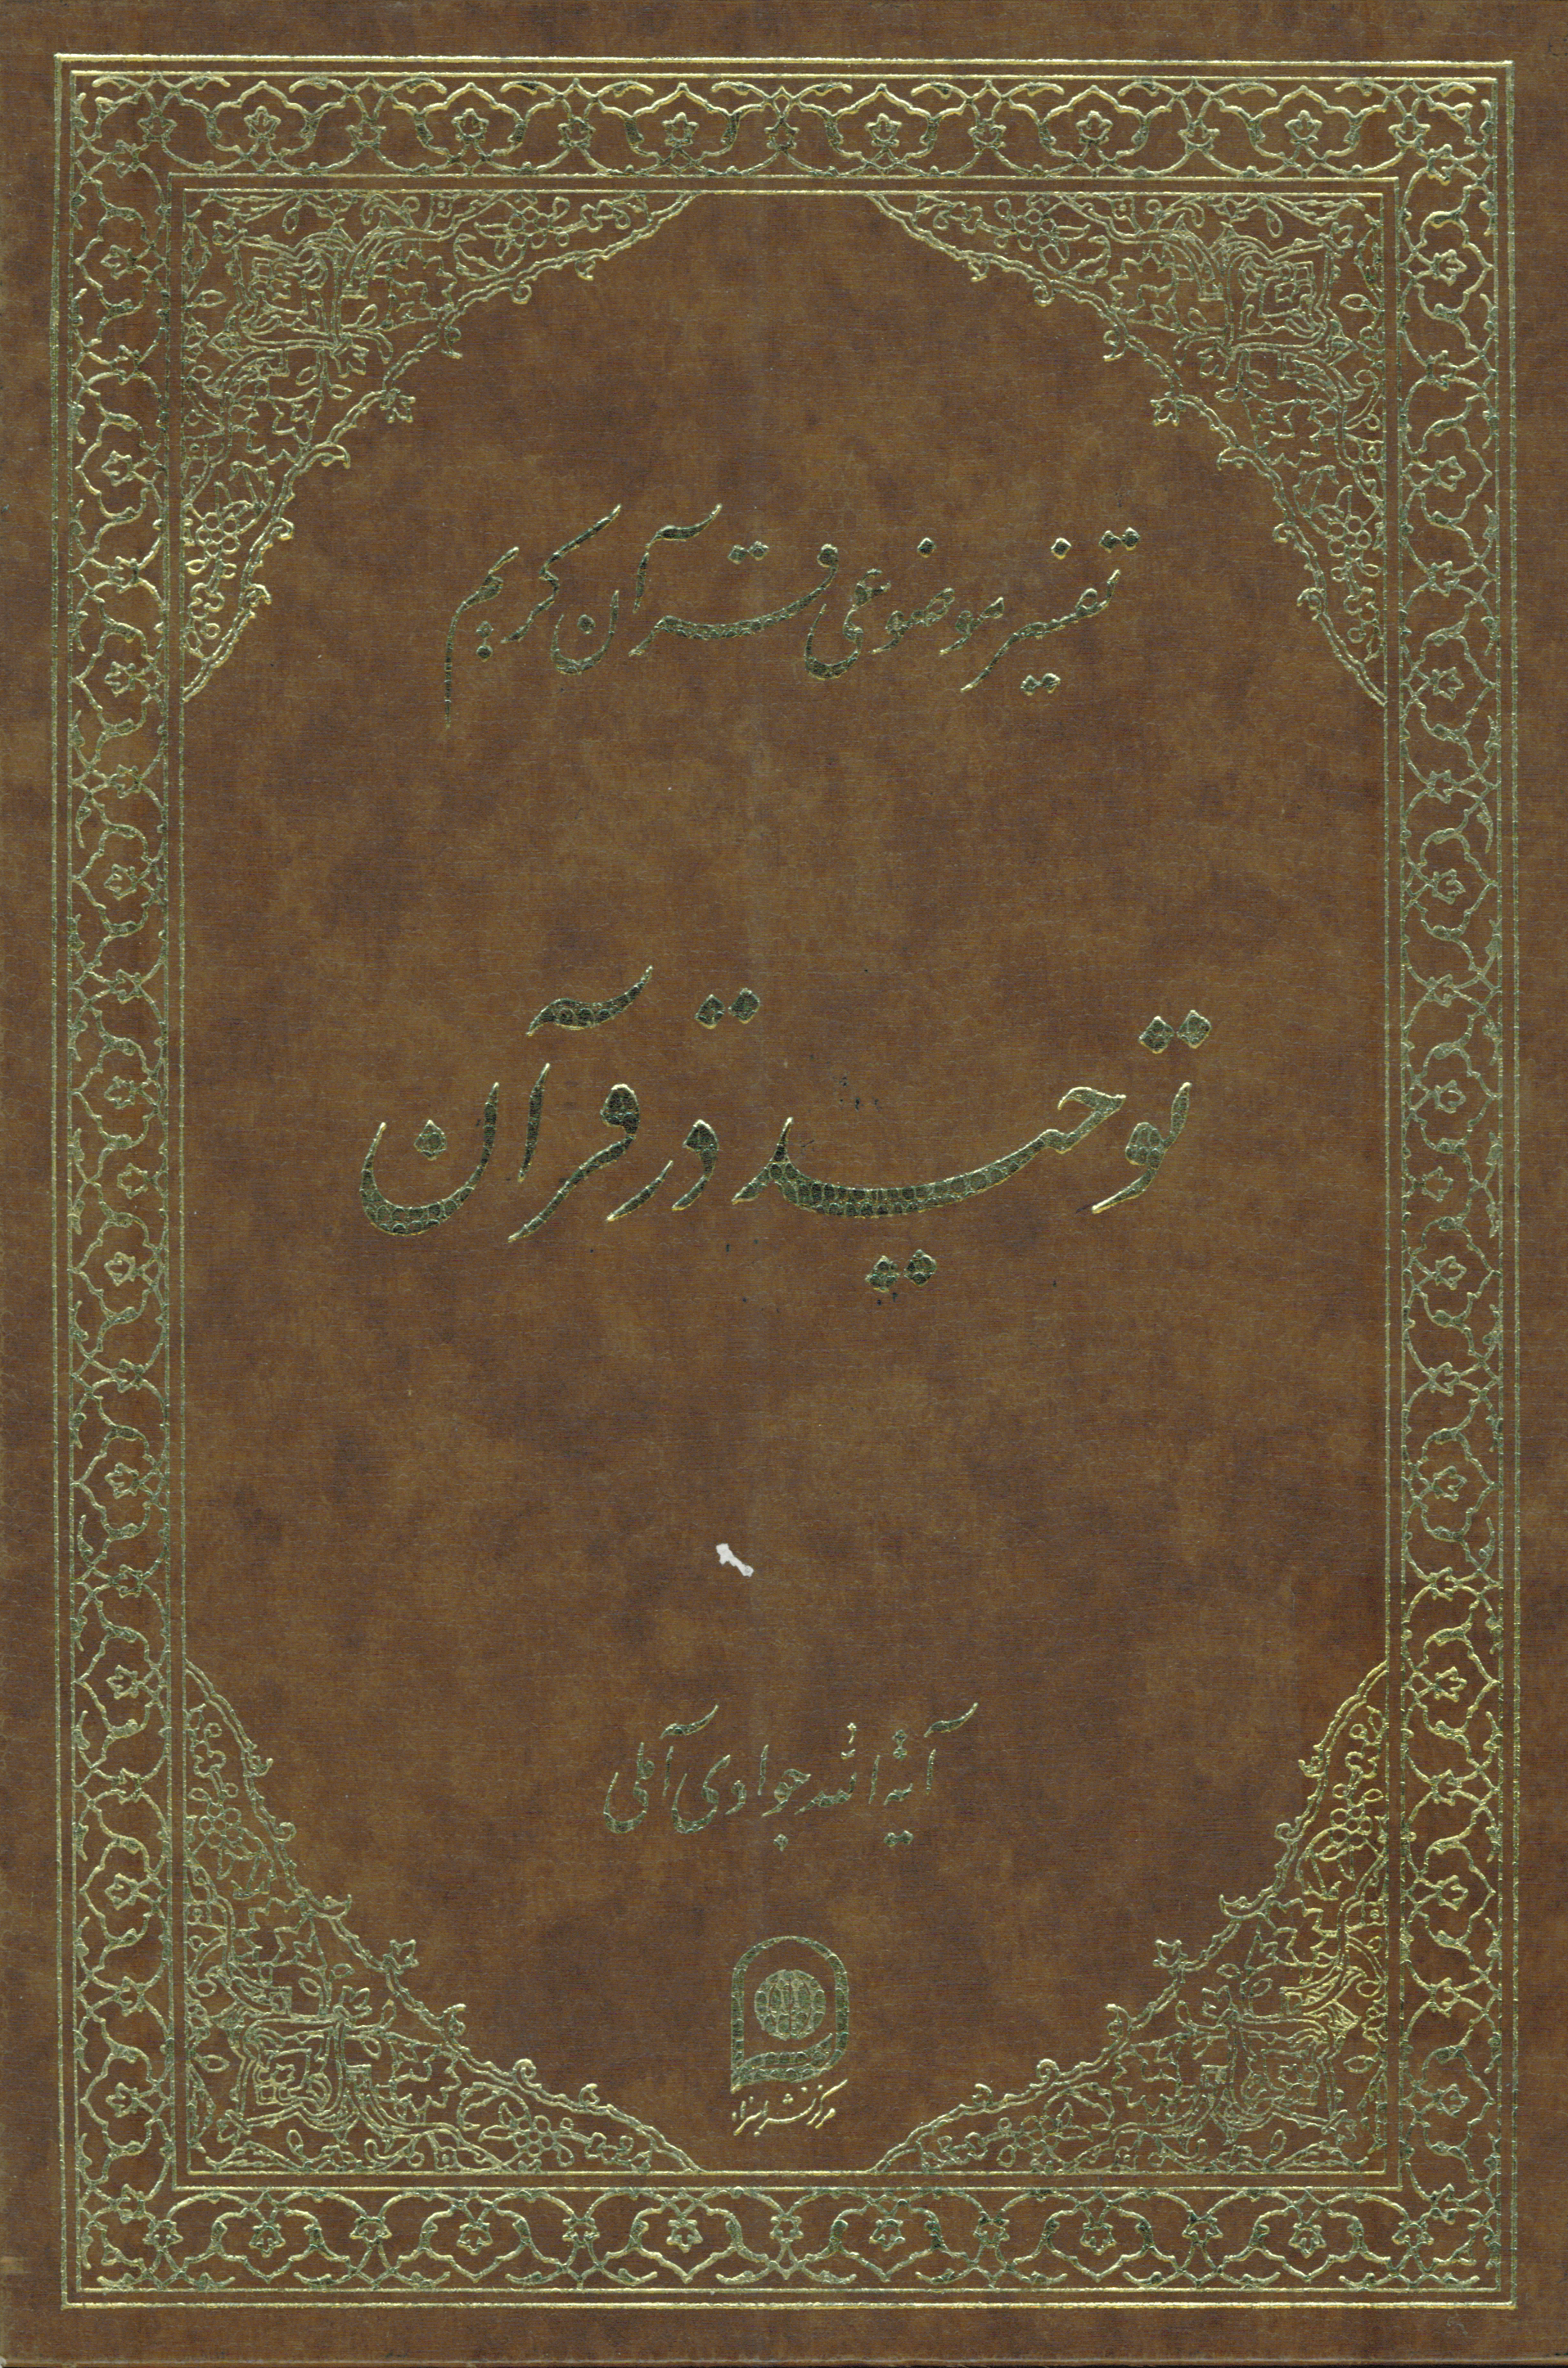 تفسیر موضوعی قرآن کریم
توحید در قرآن
آیة الله جوادی آملی
مرکز نشر اسراء